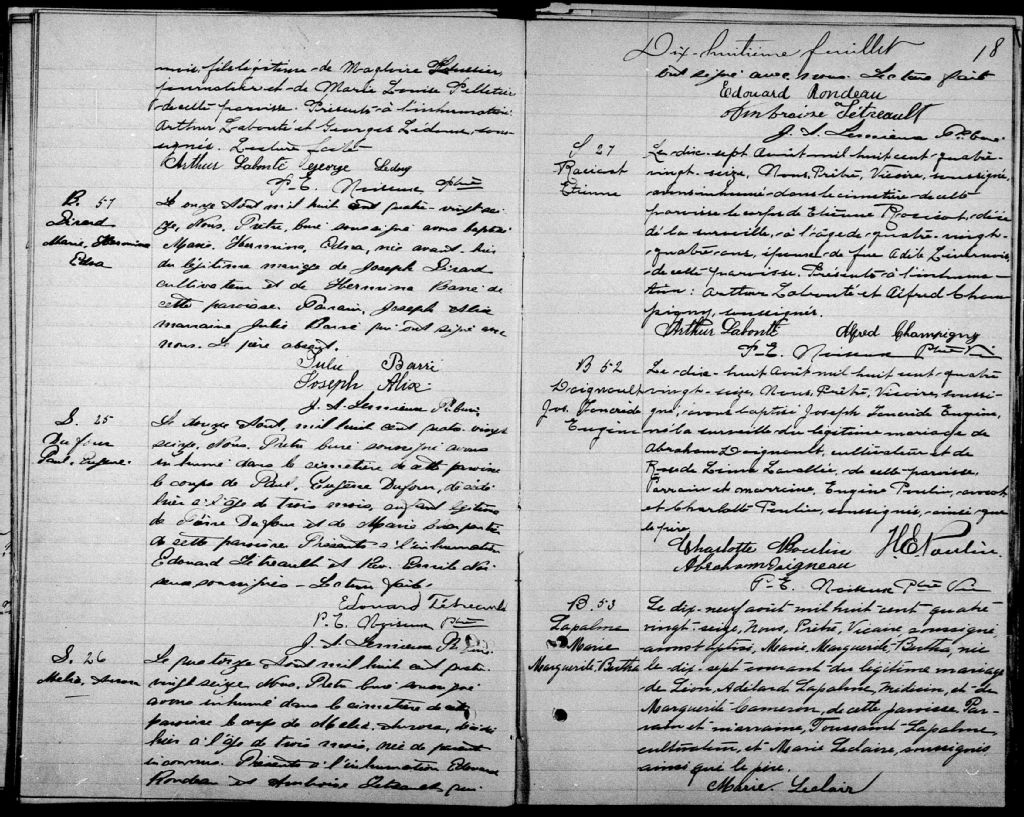 mois, fils légitime de Magloire Pelletier,
journalier et de Marie Louise Pelletier
de cette paroisse. Présents à l'inhumation
Arthur Labonté et Georges Ledoux, sous-
signés. Lecture faite
Arthur Labonté George Ledoux
P. E. Noiseux Ptre
B. 51
Girard
Marie, Hermina
Edna
Le onze Août mil huit cent quatre-vingt sei-
ze, Nous, Prêtre, Curé soussigné avons baptisé
Marie, Hermina, Edna, née avant-hier
du légitime mariage de Joseph Girard
cultivateur et de Hermina Barré de
cette paroisse. Parrain, Joseph Alix
marraine Julie Barré qui ont signé avec
nous. Le père absent.
Julie Barré
Joseph Alix
J. A. Lemieux Pt. Curé
S. 25
Dufour
Paul, Eugène
Le douze Août, mil huit cent quatre vingt
seize, Nous, Prêtre Curé soussigné avons
inhumé dans le cimetière de cette paroisse
le corps de Paul, Eugène Dufour, décédé
hier à l'âge de trois mois, enfant légitime
de Pierre Dufour et de Marie
de cette paroisse. Présents à l'inhumation
Edouard Tétreault et Rév. Emile Noi-
seux soussignés - Lecture faite.
Edouard Tétreault
P. E. Noiseux Ptre
J. A. Lemieux Pt.
S. 26
Melie,
Le quatorze Août mil huit cent quatre
vingt seize Nous, Prêtre Curé soussigné
avons inhumé dans le cimetière de cette
paroisse le corps de Melie, décédée
hier à l'âge de trois mois, née de parents
inconnus. Présents à l'inhumation Edouard
Rondeau et Ambroise Tétreault qui
Dix-huitième feuillet 18
ont signé avec nous. Lecture faite
Edouard Rondeau
Ambroise Tétreault
J. A. Lemieux Ptre Curé
S 27
Racicot
Etienne
Le dix-sept Août mil huit cent quatre-
vingt-seize, Nous, Prêtre, Vicaire, soussigné,
avons inhumé dans le cimetière de cette
paroisse le corps de Etienne Racicot, décé-
dé de la surveille, à l'âge de quatre-vingt-
quatre ans, époux de feue Adèle Livernois,
de cette paroisse. Présents à l'inhuma-
tion: Arthur Labonté et Alfred Cham-
pigny, soussignés.
Arthur Labonté Alfred Champigny
P. E. Noiseux Ptre Vic
B 52
Daigneault
Jos.
Eugène
Le dix-huit Août mil huit cent quatre
vingt-seize, Nous, Prêtre, Vicaire, soussi-
gné, avons baptisé Joseph Eugène,
né la surveille du légitime mariage de
Abraham Daigneault, cultivateur et de
Lavallée, de cette paroisse.
Parrain et marraine, Eugène Poulin, avocat
et Charlotte Poulin, soussignés, ainsi que
le père.
Charlotte Poulin H E Poulin
Abraham Daigneau
P. E. Noiseux Ptre Vic
B. 53
Lapalme
Marie
Marguerite Bertha
Le dix-neuf août mil huit-cent quatre-
vingt-seize, Nous, Prêtre, Vicaire, soussigné
avons baptisé, Marie, Marguerite, Bertha, née
le dix-sept courant du légitime mariage
de Léon, Adélard Lapalme, Médecin, et de
Marguerite Cameron, de cette paroisse. Par-
rain et marraine, Toussaint Lapalme,
cultivateur, et Marie Leclaire, soussignés
ainsi que le père.
Marie Leclair